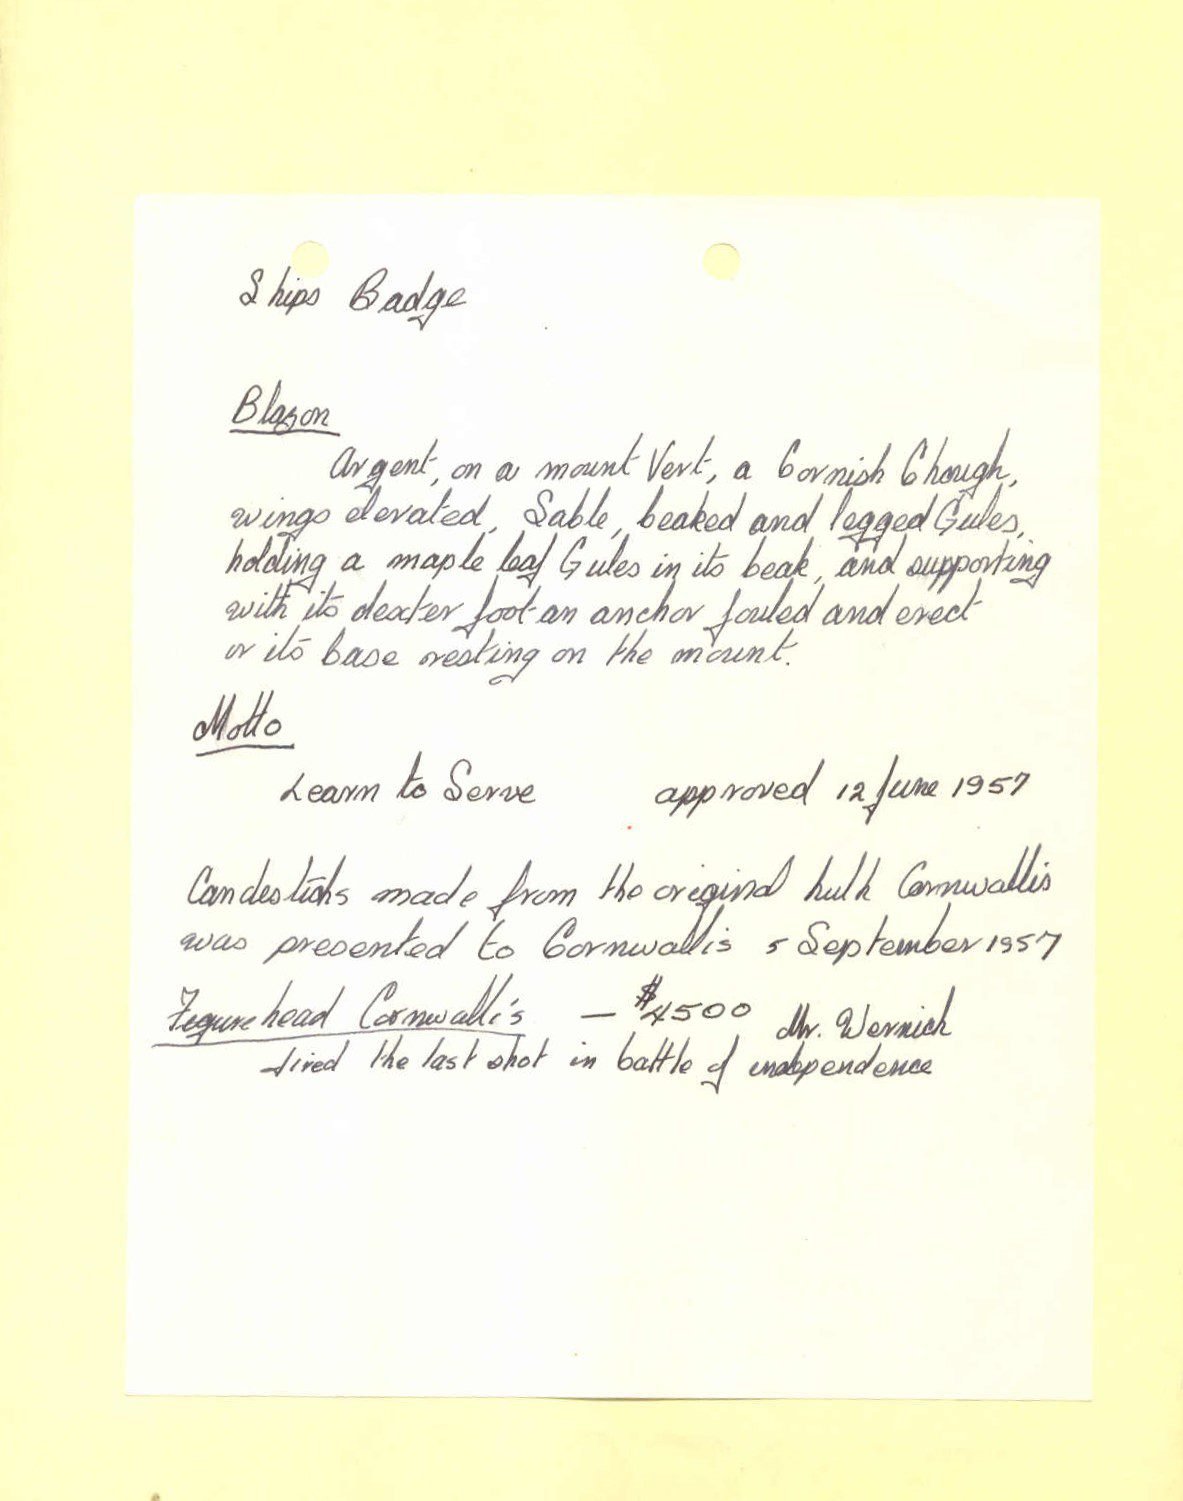 Ships Badge
Blazon
Argent, on a mount Vert, a Cornish Chough,
wings elevated, Sable, beaked and legged Gules,
holding a maple leaf Gules in its beak, and supporting
with its dexter foot an anchor fouled and erect
or its base resting on the mount.
Motto
Learn to Serve approved 12 June 1957
Candesticks made from the original hulk Cornwallis
was presented to Cornwallis 5 September 1957
Figurehead Cornwallis — $4500 Mr. Wernich
fired the last shot in battle of independence